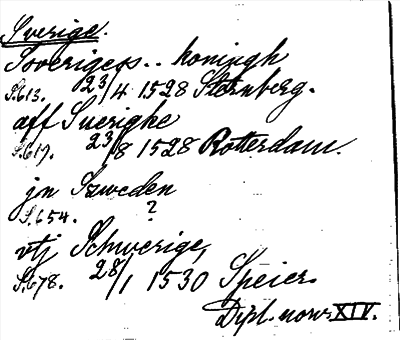 Sverige.
Soverigess.. koningh
S.613. 23/4 1528 Sternberg.
aff Suerighe
S.619. 23/8 1528 Rotterdam.
jn Szweden
S.654. ?
vtj Schwerige,
S.678. 28/1 1530 Speier.
Dipl. norv. XIV.